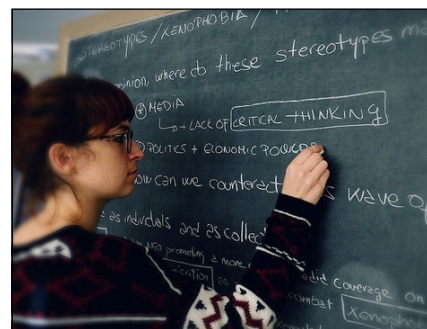 STEREOTYPES / XENOPHOBIA /
opinion, where do these stereotypes
⊕ MEDIA
↳ + LACK OF CRITICAL THINKING
POLITICS + ECONOMIC POWERS
how can we counteract wave
as individuals and as
NGO promoting a more coverage on
combat